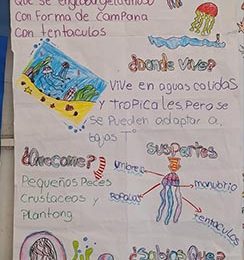 que se engloba gelatinoso
con forma de campana
con tentaculos
¿Donde Vive?
Vive en aguas calidas
y tropicales pero se
se pueden adaptar a
bajas T°
¿Que come?
Pequeños Peces
Crustaceos y
Plantong
sus partes
umbrela
manubrio
tentaculos
¿Sabias Que?